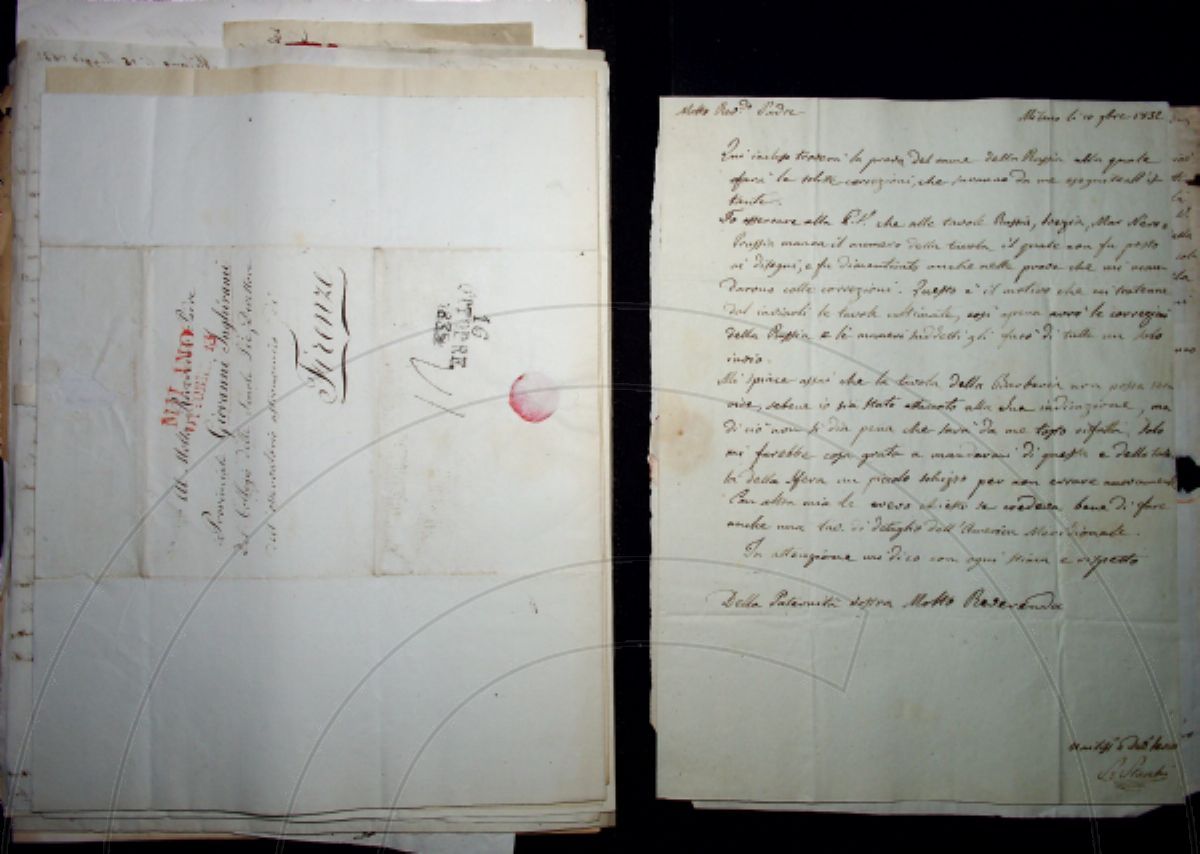 Al Molto Reverendo Padre
Provinciale Giovanni Inghirami
del Collegio delle Scuole Pie, Direttore
dell'osservatorio astronomico di
Firenze
MILANO
16
OTTOBRE
Molto Rev.do Padre
Milano li 10 9bre 1832
Qui incluso troverà la prova del mare della Russia alla quale
farà le solite correzioni, che saranno da me eseguite all'is
tante.
Fo osservare alla P.V. che alle tavole Russia, Svezia, Mar Nero e
Prussia manca il numero della tavola il quale non fu posto
ai disegni, e fu dimenticato anche nelle prove che mi man
darono colle correzioni. Questo è il motivo che mi trattenne
dal inviarli le tavole ultimate, così apena avrò le correzioni
della Russia e li numeri suddetti gli farò di tutte un solo
invio.
Mi spiace assai che la tavola della Barberia non possa ser
vire, sebene io sia stato attacato alla sua indicazione, ma
di ciò non si dia pena che sarà da me tosto rifatta, solo
mi farebbe cosa grata a mandarmi di questa e della tavo
la della Sfera un piccolo schizzo per non errare nuovamente
Con altra mia le avevo chiesto se credeva bene di fare
anche una tav. di detaglio dell'America Meridionale.
In attenzione mi dico con ogni stima e rispetto
Della Paternità Vostra Molto Reverenda